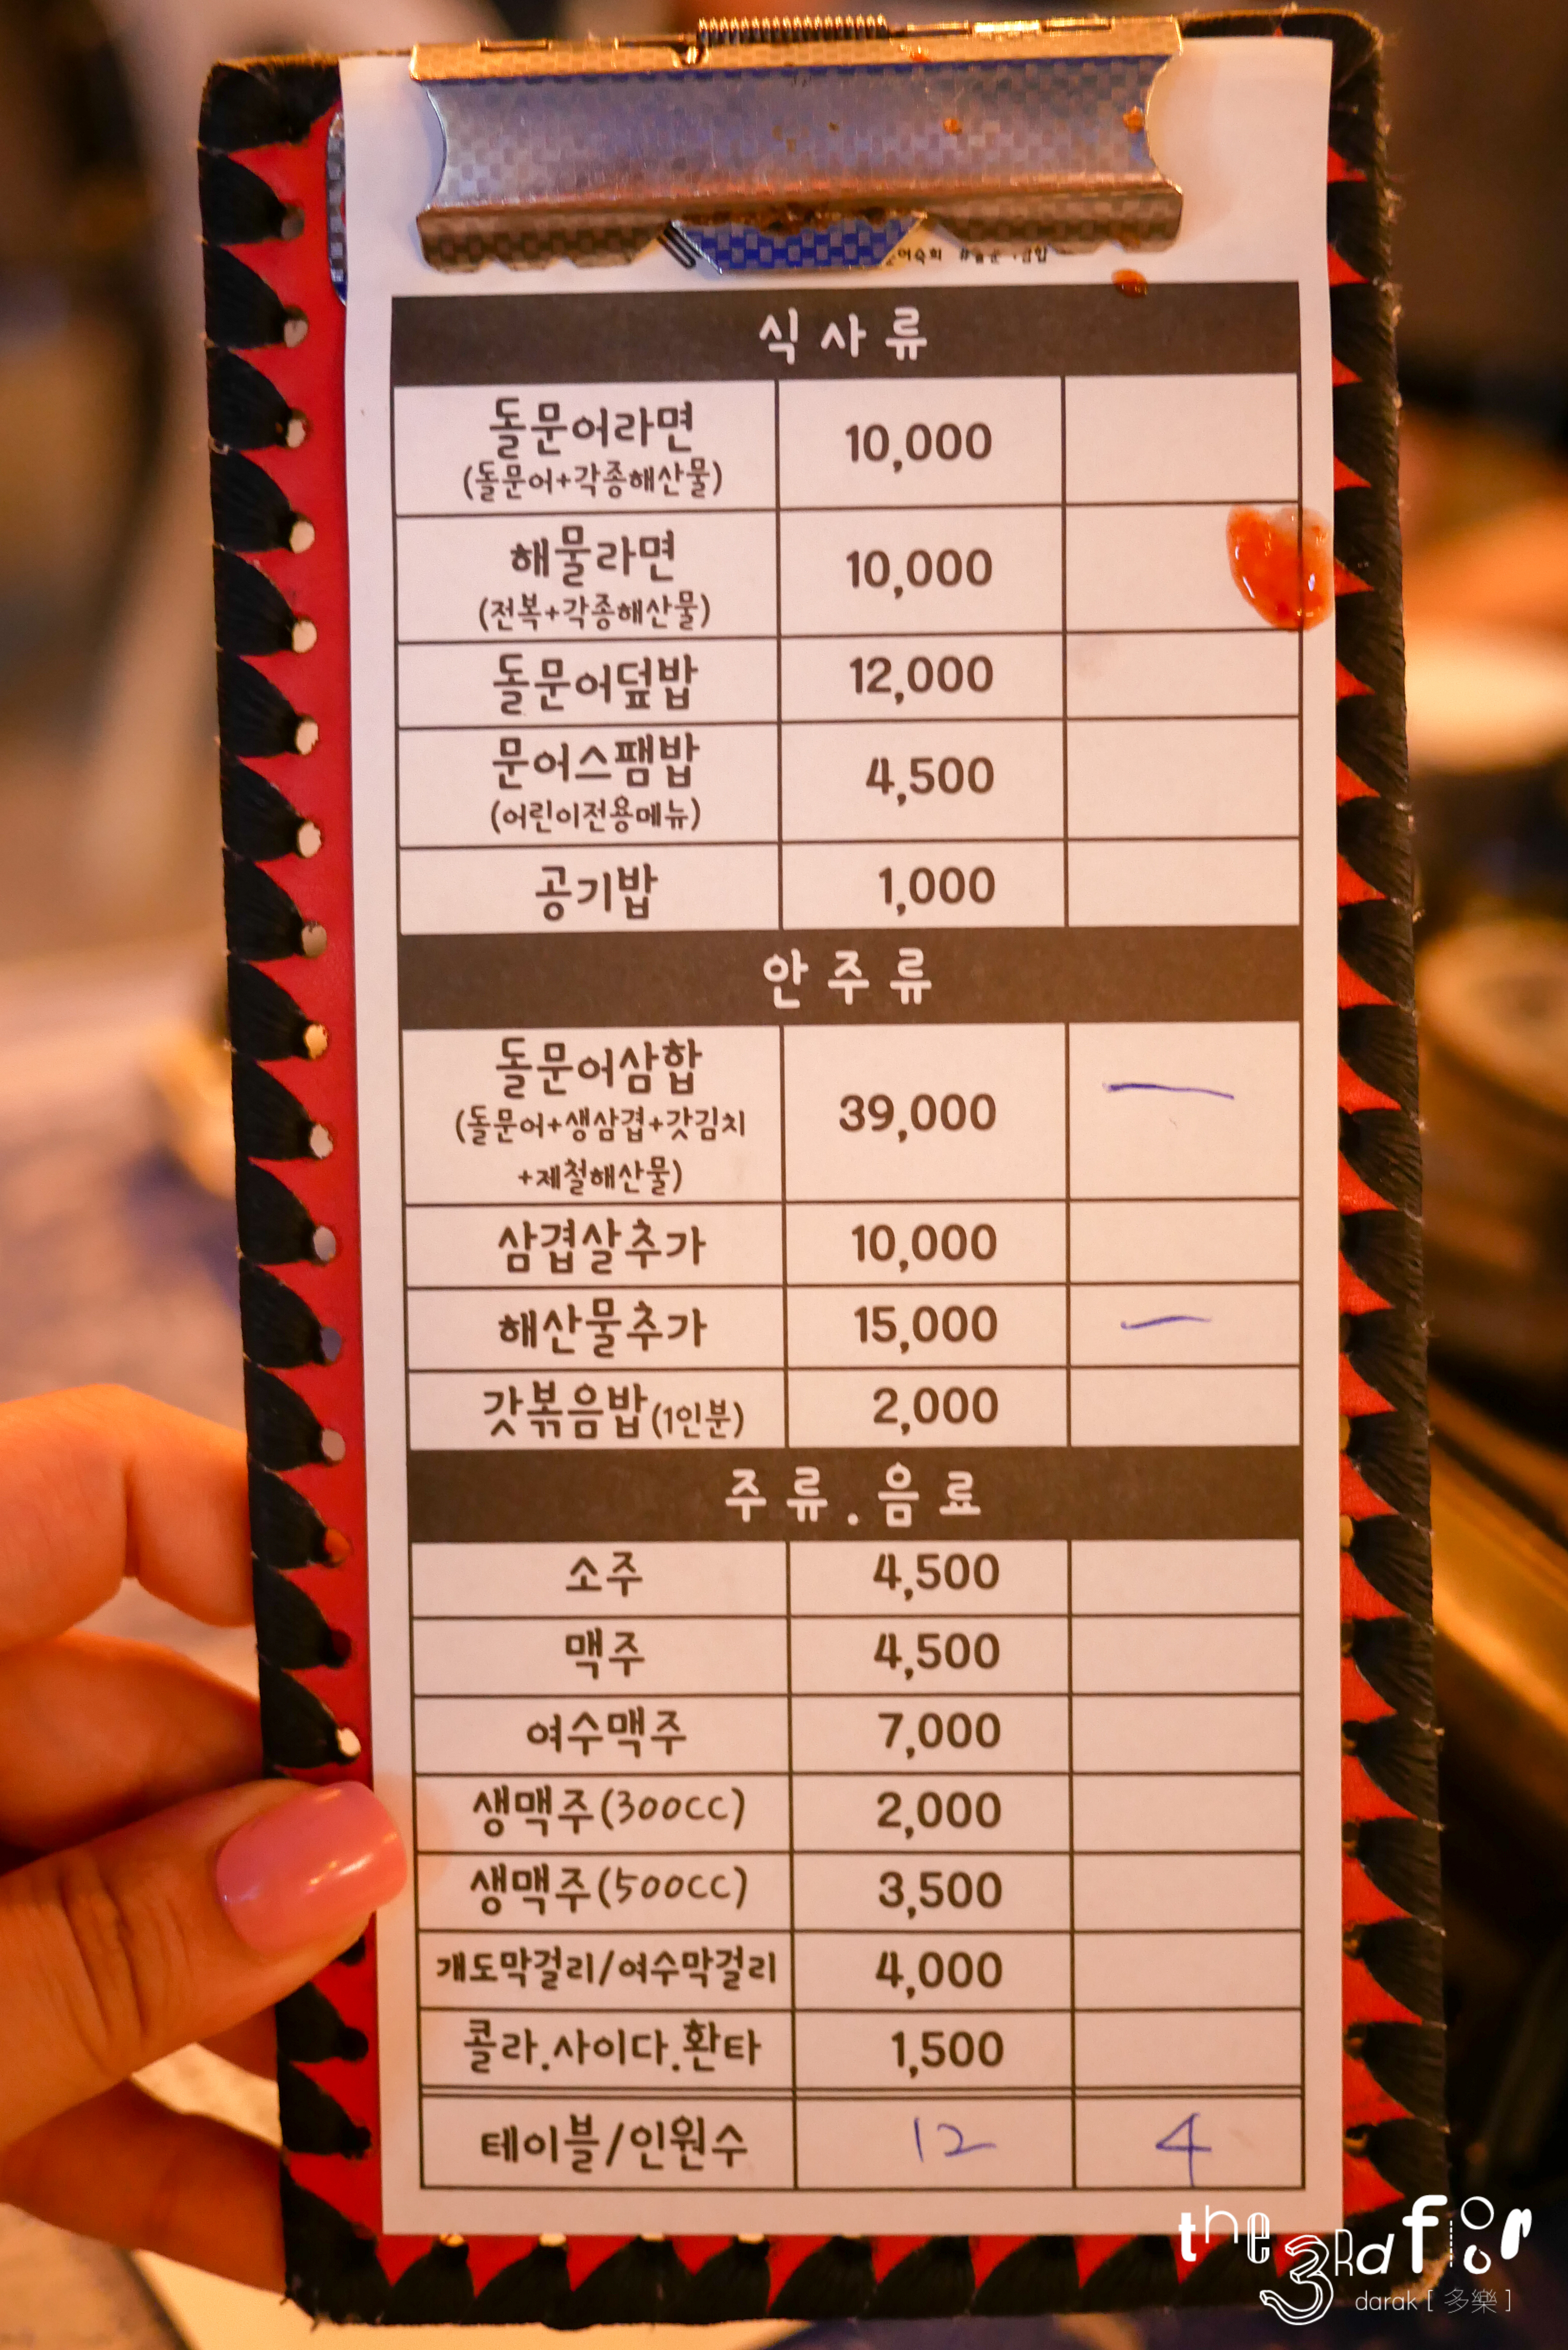 식사류
돌문어라면 10,000
(돌문어+각종해산물)
해물라면 10,000
(전복+각종해산물)
돌문어덮밥 12,000
문어스팸밥 4,500
(어린이전용메뉴)
공기밥 1,000
안주류
돌문어삼합
(돌문어+생삼겹+갓김치 39,000
+제철해산물)
삼겹살추가 10,000
해산물추가 15,000
갓볶음밥(1인분) 2,000
주류.음료
소주 4,500
맥주 4,500
여수맥주 7,000
생맥주(300cc) 2,000
생맥주(500cc) 3,500
개도막걸리/여수막걸리 4,000
콜라.사이다.환타 1,500
테이블/인원수 12 4
the 3rd floor
darak [ 多樂 ]